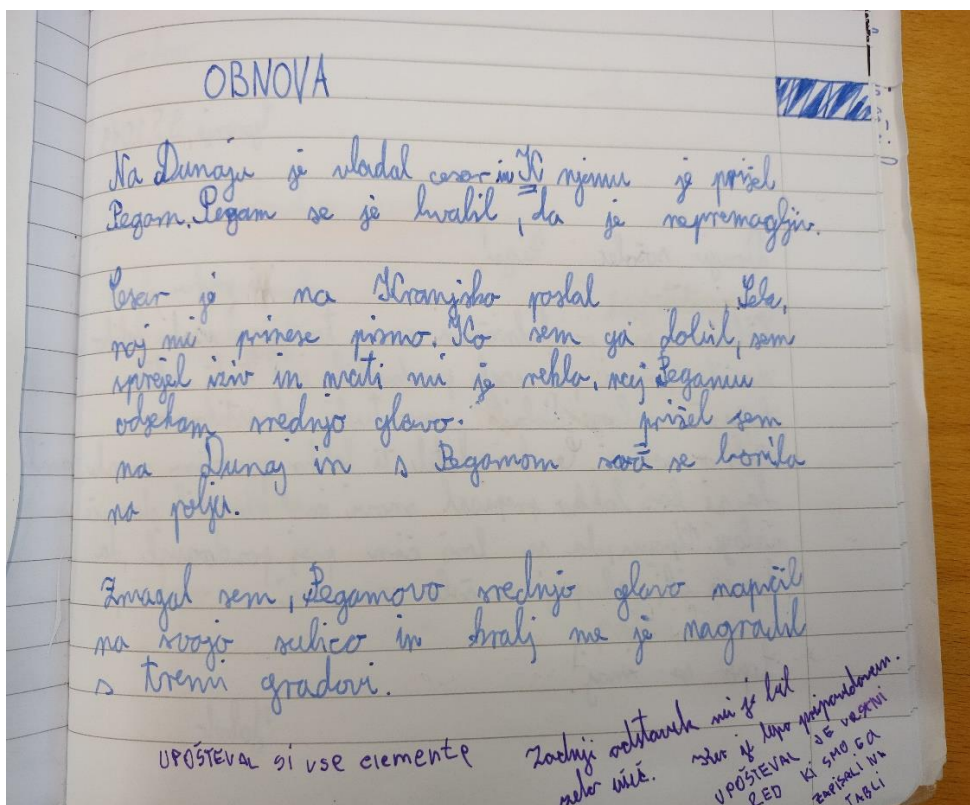 OBNOVA
Na Dunaju je vladal cesar in K njemu je prišel
Pegam. Pegam se je hvalil, da je nepremagljiv.
Cesar je na Kranjsko poslal sela,
naj mi prinese pismo. Ko sem ga dobil, sem
sprejel izziv in mati mi je rekla, naj Pegamu
odsekam srednjo glavo. prišel sem
na Dunaj in s Pegamom sva se borila
na polju.
Zmagal sem, Pegamovo srednjo glavo napičil
na svojo sulico in kralj me je nagradil
s tremi gradovi.
UPOŠTEVAL SI VSE ELEMENTE
Zadnji odstavek mi je bil
zelo všeč. Ker je lepo pripovedovan.
UPOŠTEVAL JE VRSTNI
RED KI SMO GA
ZAPISALI NA
TABLI